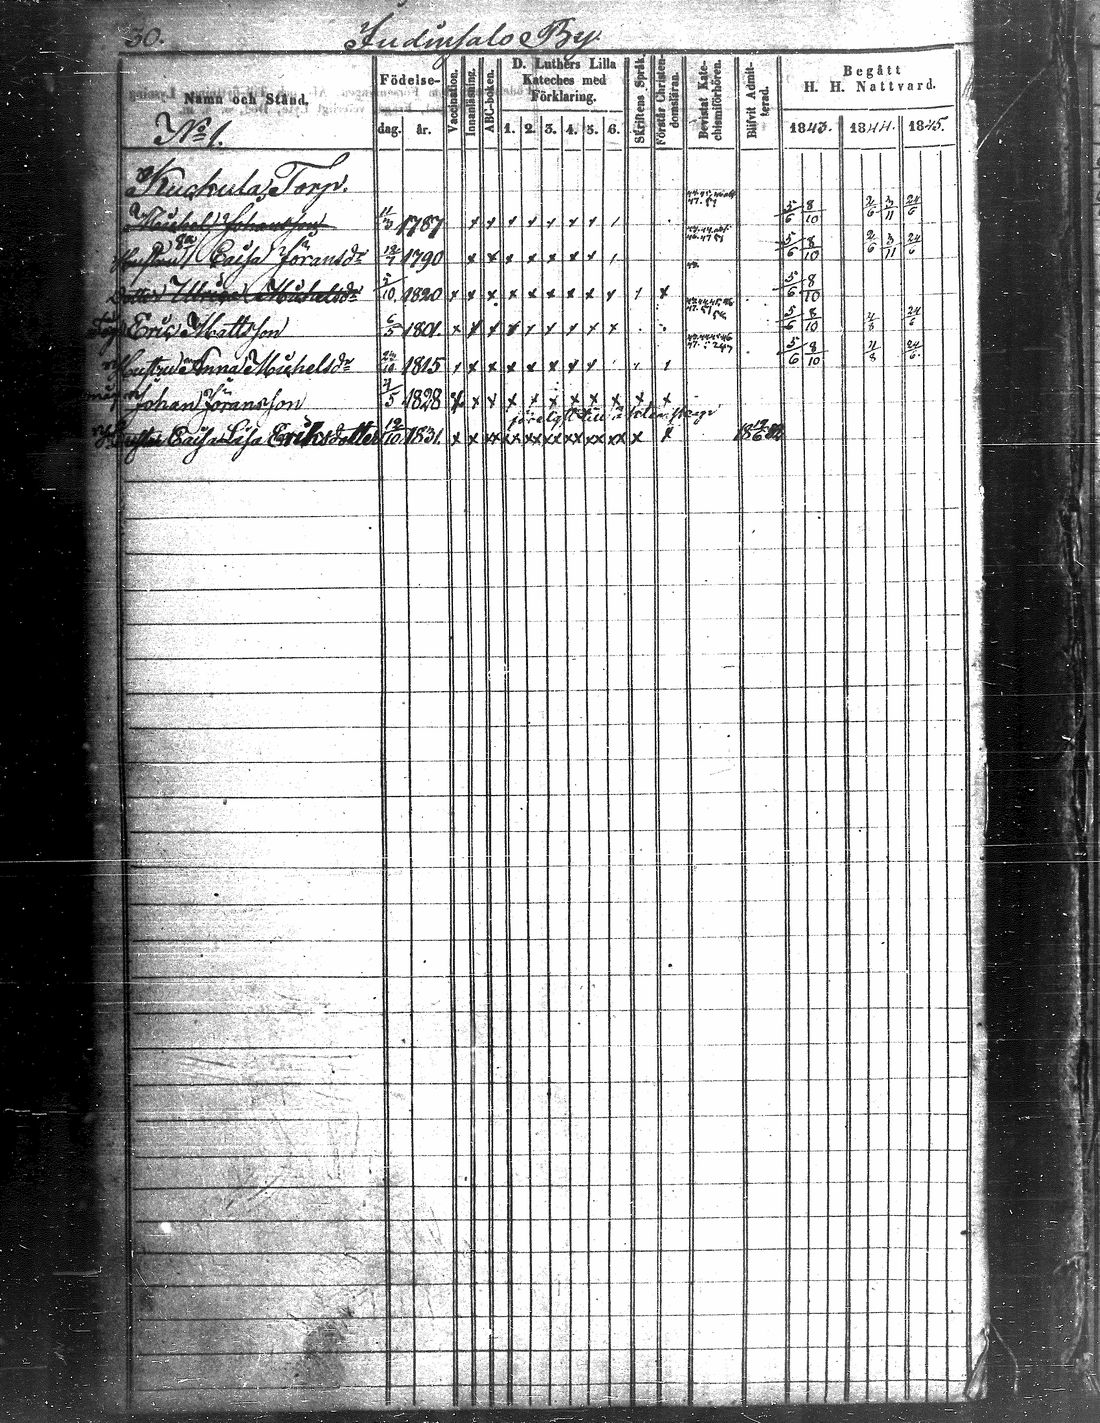 30. Judinsalo By.
Namn och Stånd.
Födelse-
dag. år.
Vaccination.
Innanläsning.
ABC-boken.
D. Luthers Lilla
Kateches med
Förklaring.
1. 2. 3. 4. 5. 6.
Skriftens Språk.
Förstår Christen-
domsläran.
Bevistat Kate-
chismiförhören.
Blifvit Admit-
terad.
Begått
H. H. Nattvard.
1843. 1844. 1845.
No 1.
Kuckula Torp.
Michel Johansson 11/3 1787 x x x x x x x x 5/6 8/10 2/6 3/11 24/6
Hustru Caisa Göransdr 12/7 1790 x x x x x x x x 5/6 8/10 2/6 3/11 24/6
Dotter Ulrica Michelsdr 5/10 1820 x x x x x x x x x x 5/6 8/10
Eric Mattsson 6/5 1801 x x x x x x x x x 5/6 8/10 24/6
Hustru Anna Michelsdr 1815 x x x x x x x 5/6 8/10 24/6
Johan Göransson 4/5 1828 x x x x x x x x x x x
Caisa Lisa Eriksdotter 12/10 1831 x x xx xx xx xx xx xx xx x x